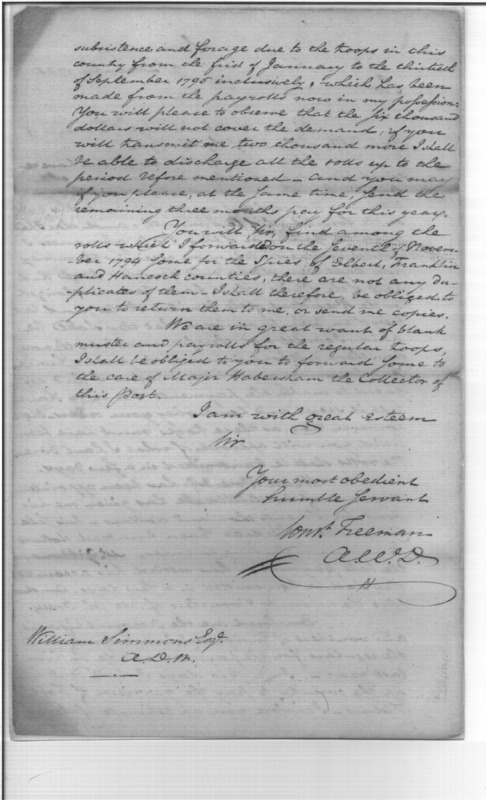 subsistence and forage due to the troops in this
county from the first of January to the thirtieth
of September 1795 inclusively, which has been
made from the payrolls now in my possession.
You will please to observe that the six thousand
dollars will not cover the demand; if you
will transmit me two thousand more I shall
be able to discharge all the rolls up to the
period before mentioned - and you may
if you please, at the same time, send the
remaining three months pay for this year.
You will Sir, find among the
rolls which I forwarded on the seventh of Novem-
-ber 1794 some for the Spies of Elbert, Franklin
and Hancock counties, there are not any du-
-plicates of them - I shall therefore, be obliged to
you to return them to me, or send me copies.
We are in great want of blank
muster and payrolls for the regular troops,
I shall be obliged to you to forward some to
the care of Major Habersham the Collector of
this Port.
I am with great esteem
Sir
Your most obedient
humble Servant
Const. Freeman
A.W.D.
William Simmons Esqr.
A.D.W.